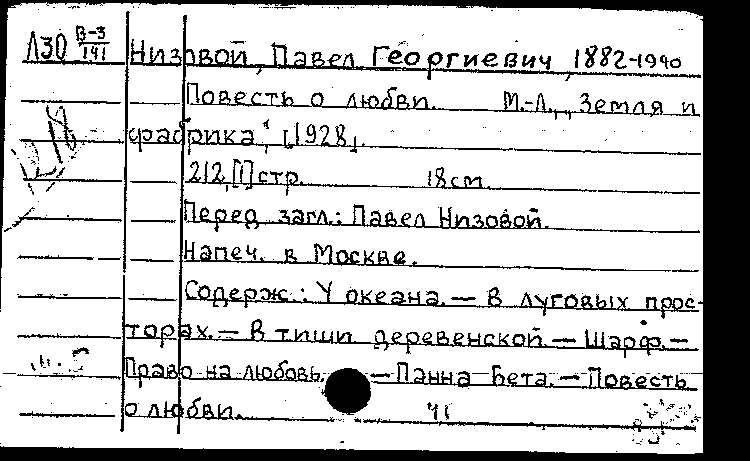 Л30 В-3/141 Низовой, Павел Георгиевич, 1882-1940
Повесть о любви. М.-Л., „Земля и
фабрика", [1928].
212, [1] стр. 18 см.
Перед загл.: Павел Низовой.
Напеч. в Москве.
Содерж.: У океана. — В луговых прос-
торах. — В тиши деревенской — Шарф. —
Право на любовь. — Панна Бета. — Повесть
о любви. 41